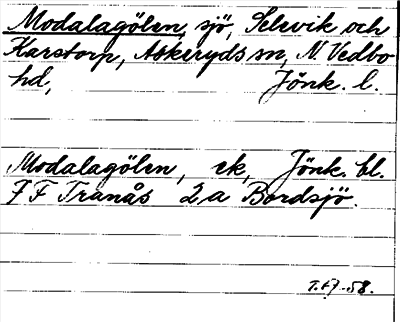 Modalagölen, sjö, Selevik och
Karstorp, Askeryds sn, N. Vedbo
hd, Jönk. l.
Modalagölen, ek, Jönk. bl.
7 F Tranås 2a Bordsjö.